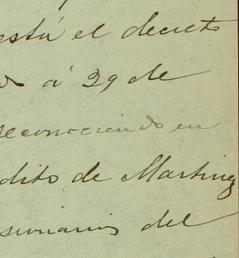 está el decreto
á 29 de
reconociendo en
dito de Martinez
sionario del